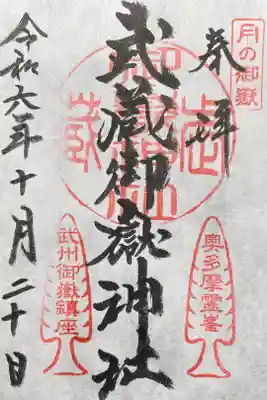 月の御嶽
奉拝
奥多摩霊峯
武蔵御嶽神社
武州御嶽鎮座
令和六年十月二十日